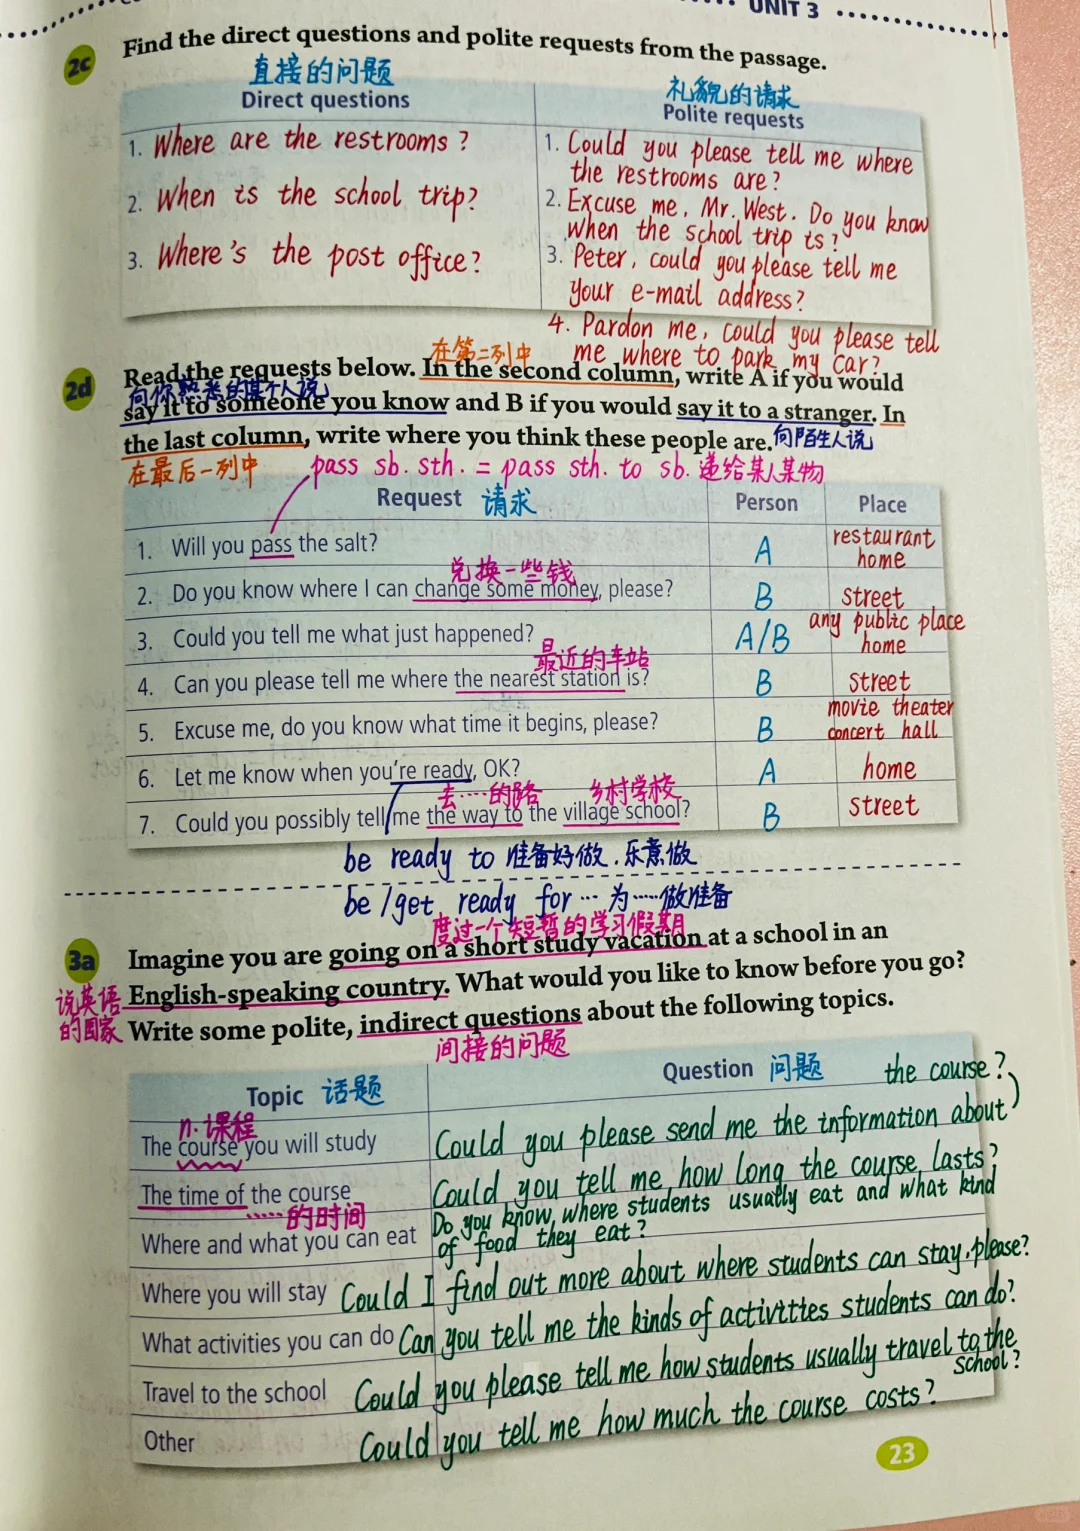 UNIT 3
2c Find the direct questions and polite requests from the passage.
直接的问题
Direct questions
礼貌的请求
Polite requests
1. Where are the restrooms?
2. When is the school trip?
3. Where's the post office?
1. Could you please tell me where
the restrooms are?
2. Excuse me, Mr. West. Do you know
when the school trip is?
3. Peter, could you please tell me
your e-mail address?
4. Pardon me, could you please tell
me where to park my car?
在第二列中
2d Read the requests below. In the second column, write A if you would
向你熟悉的某个人说
say it to someone you know and B if you would say it to a stranger. In
the last column, write where you think these people are.
向陌生人说
在最后一列中
pass sb. sth. = pass sth. to sb. 递给某人某物
Request 请求 Person Place
1. Will you pass the salt? A restaurant
home
兑换一些钱
2. Do you know where I can change some money, please? B street
3. Could you tell me what just happened? A/B any public place
home
最近的车站
4. Can you please tell me where the nearest station is? B street
5. Excuse me, do you know what time it begins, please? B movie theater
concert hall
6. Let me know when you're ready, OK? A home
去……的路 乡村学校
7. Could you possibly tell me the way to the village school? B street
be ready to 准备好做.乐意做
be/get ready for … 为……做准备
度过一个短暂的学习假期
3a Imagine you are going on a short study vacation at a school in an
说英语
的国家
English-speaking country. What would you like to know before you go?
Write some polite, indirect questions about the following topics.
间接的问题
Topic 话题 Question 问题
n. 课程
The course you will study Could you please send me the information about
the course?
The time of the course Could you tell me how long the course lasts?
……的时间
Where and what you can eat Do you know where students usually eat and what kind
of food they eat?
Where you will stay Could I find out more about where students can stay, please?
What activities you can do Can you tell me the kinds of activities students can do?
Travel to the school Could you please tell me how students usually travel to the
school?
Other Could you tell me how much the course costs?
23